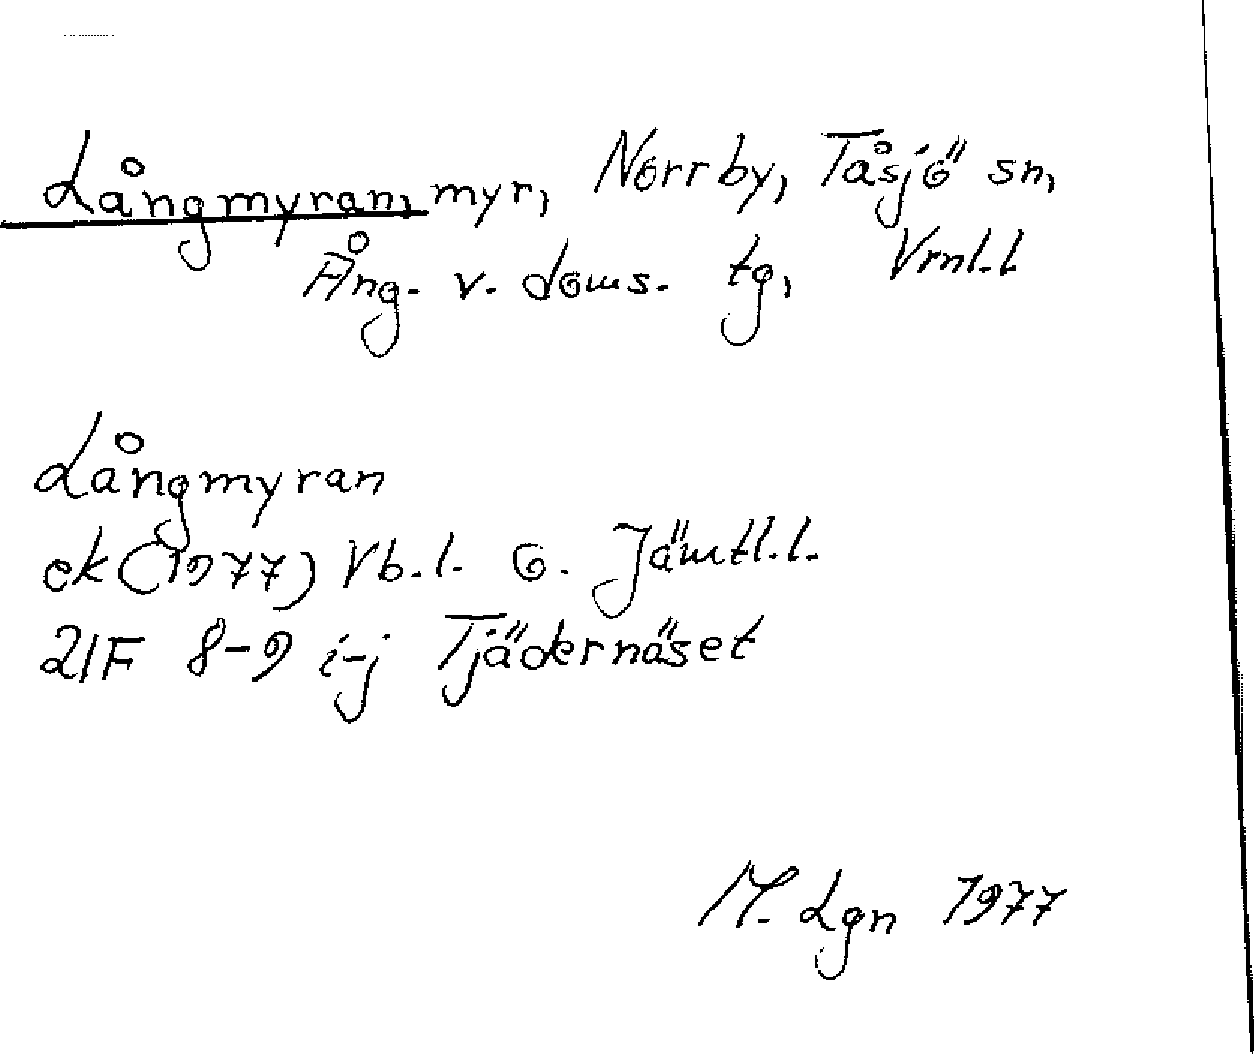 Långmyran, myr, Norrby, Tåsjö sn,
Ång. v. doms. tg, Vrnl. l
Långmyran
ek (1977) Vb.l. o. Jämtl.l.
21F 8-9 i-j Tjädernäset
M. Lgn 1977